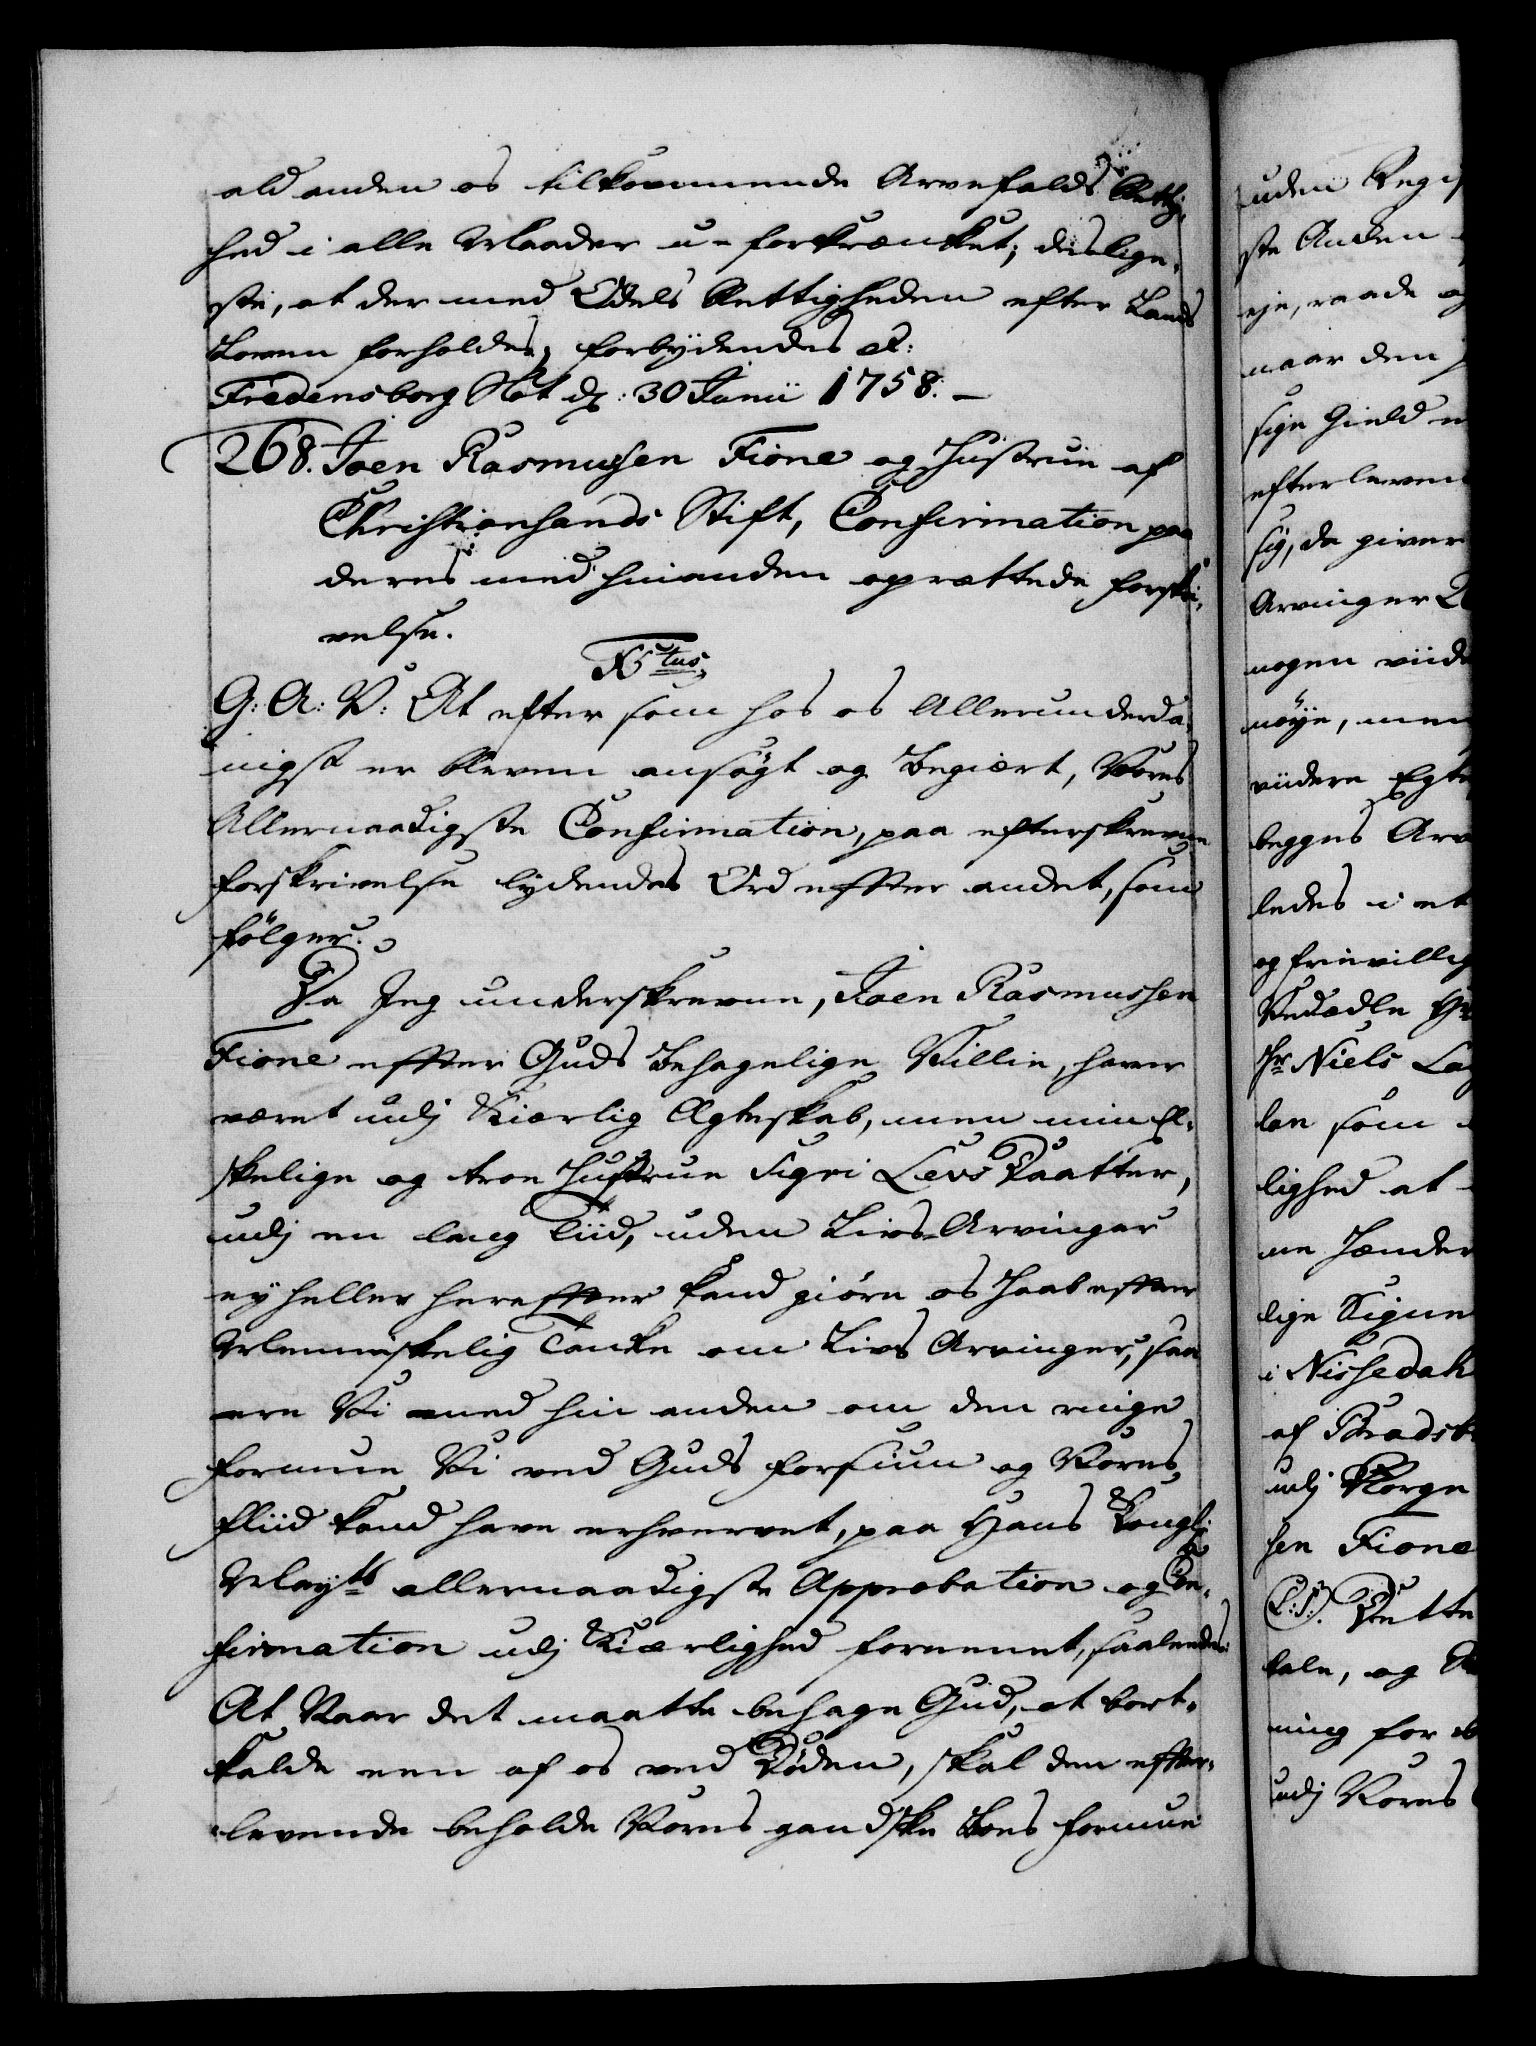 ald anden os tilkommende Arvefalds Rettig-
hed i alle Maader u-forkrænket; deslige-
ste, at der med Odels Rettigheden efter Lands
Loven forholdes, forbydendes etc:
Fredensborg Slot d: 30 Junii 1758. —
268. Joen Rasmussen Fione og Hustrue af
Christiansands Stift, Confirmation paa
deres med hinanden oprættede forskri-
velse.
F5tus
G: A: V: At efter som hos os Allerunderda-
nigst er bleven ansøgt og Begiært, Vores
Allernaadigste Confirmation, paa efterskrevne
forskrivelse lydendes Ord effter andet, som
følger.
Da Jeg underskrevne, Joen Rasmussen
Fione effter Guds Behagelige Villie, haver
været udj Kiærlig Ægteskab, men min El-
skelige og troe Hustrue Sigri Levs Daatter,
udj en lang Tiid, uden Livs-Arvinger
ey heller hereffter kand giøre os Haab effter
Menniskelig Tanke om Livs Arvinger, saa
ere Vi med hin anden om den ringe
formue Vi ved Guds forsiun og Vores
fliid kand have erhvervet, paa Hans Kongl:
Mayts allernaadigste Approbation og Con-
firmation udj Kiærlighed foreenet, saaledes:
At Naar det maatte behage Gud, at bort-
kalde een af os ved Døden, skal den effter-
levende beholde Vores gandske Boes formue
uden Regis
ste Anden
eje, raade og
naar den
sige Gield
efterleven
sig, da giver
Arvinger
nogen viide
nøye, men
viidere Egte
begges Arv
ledes i et
og frievillig
Velædle Hr
Hr Niels Lag
len som
lighed at
ne Hænder
lige Signe
i Nissedahl
af Bradsb
udj Norge
sen Fione
(L:S:). Dette
tale, og
ning for
udj Vores